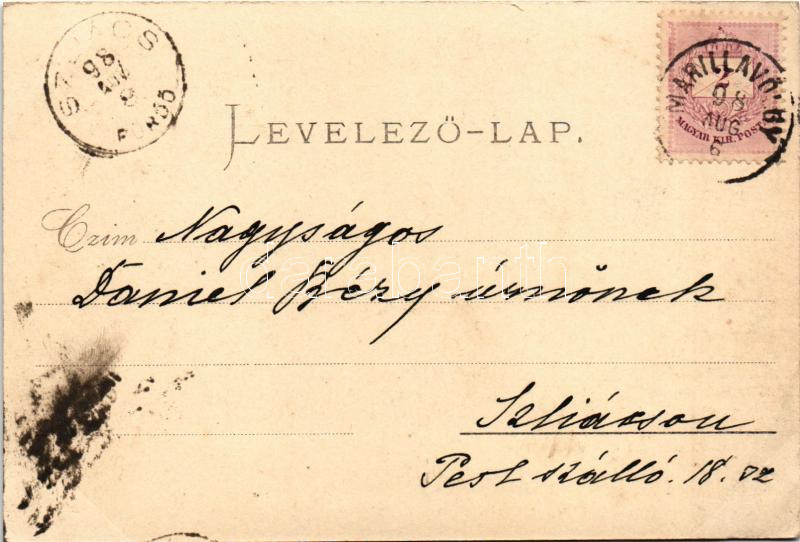 SZLIÁCS
98
AUG
8
FÜRDŐ
MARILLAVÖLGY
98
AUG.
6
2
MAGYAR KIR. POSTA
LEVELEZŐ-LAP.
Czim Nagyságos
Daniel úrnőnek
Szliácson
Pest szálló. 18. sz
darabanth